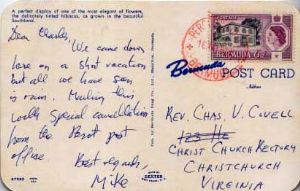 A perfect display of one of the most elegant of flowers,
the delicately tinted hibiscus, as grown in the beautiful
Southland.
Dear Charles,
We came down
here on a short vacation
but all we have seen
is rain. Mailing this
with Special cancellation
from the Perot post
office.
Best regards,
Mike
BERMUDA
Bermuda
POST CARD
Address
REV. CHAS. V. COVELL
CHRIST CHURCH RECTORY
CHRISTCHURCH
VIRGINIA
DEXTER